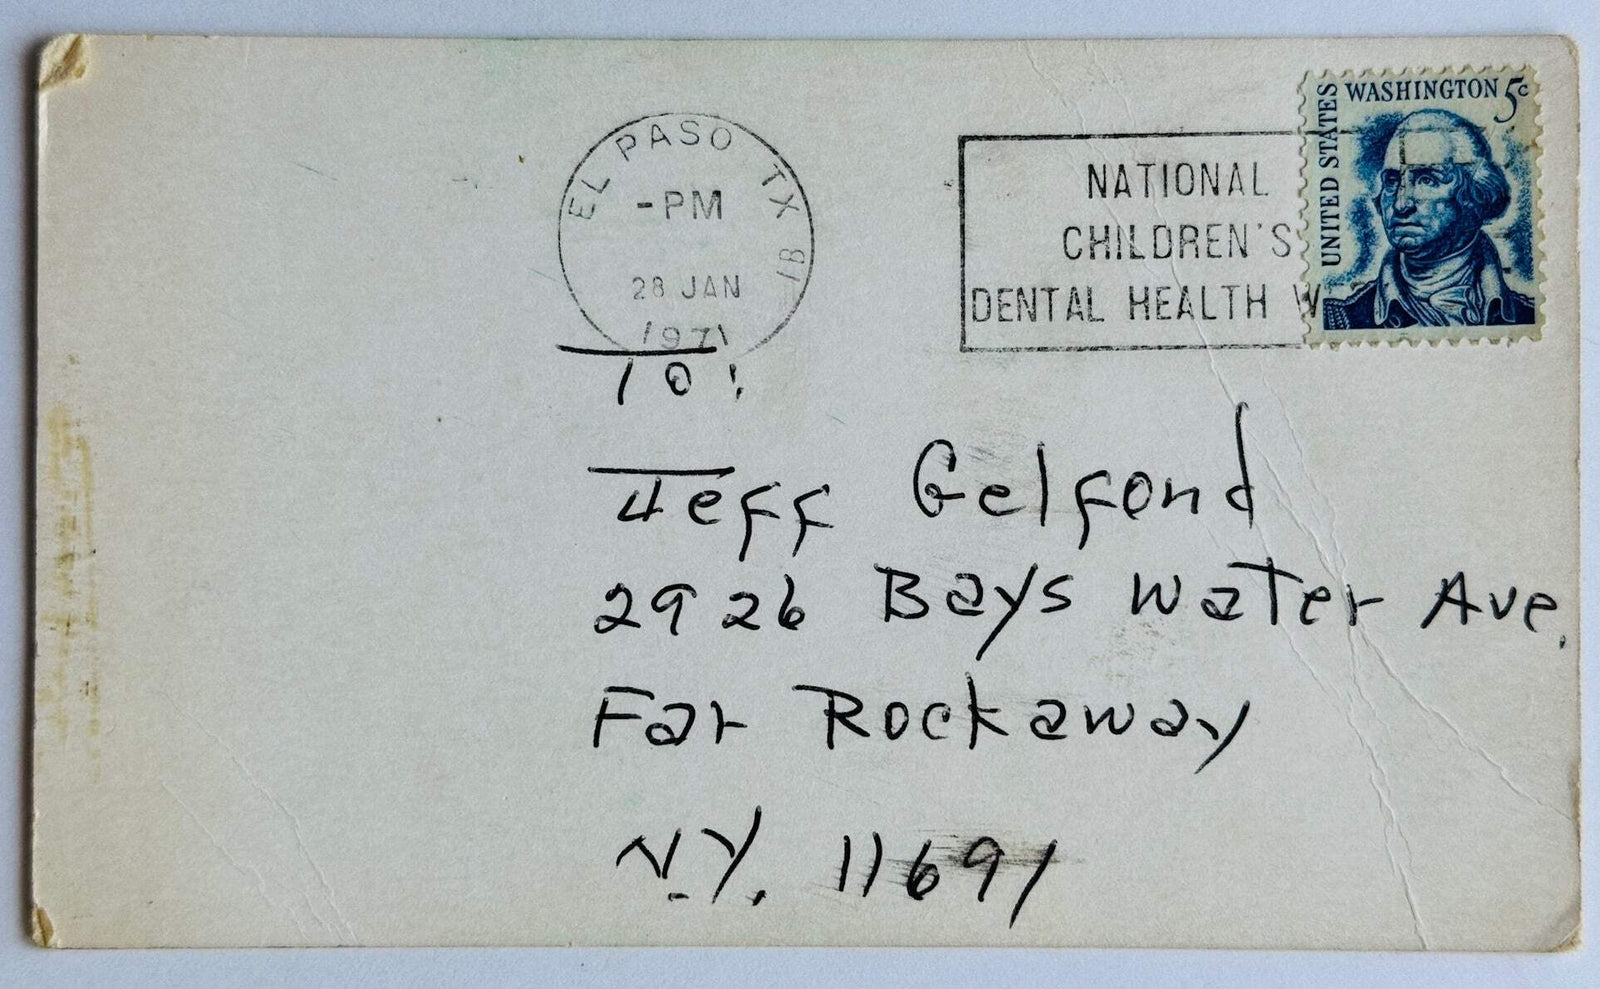 EL PASO TX
-PM
28 JAN
1971
NATIONAL
CHILDREN'S
DENTAL HEALTH W
UNITED STATES
WASHINGTON 5c
To:
Jeff Gelfond
2926 Bays Water Ave.
Far Rockaway
N.Y. 11691